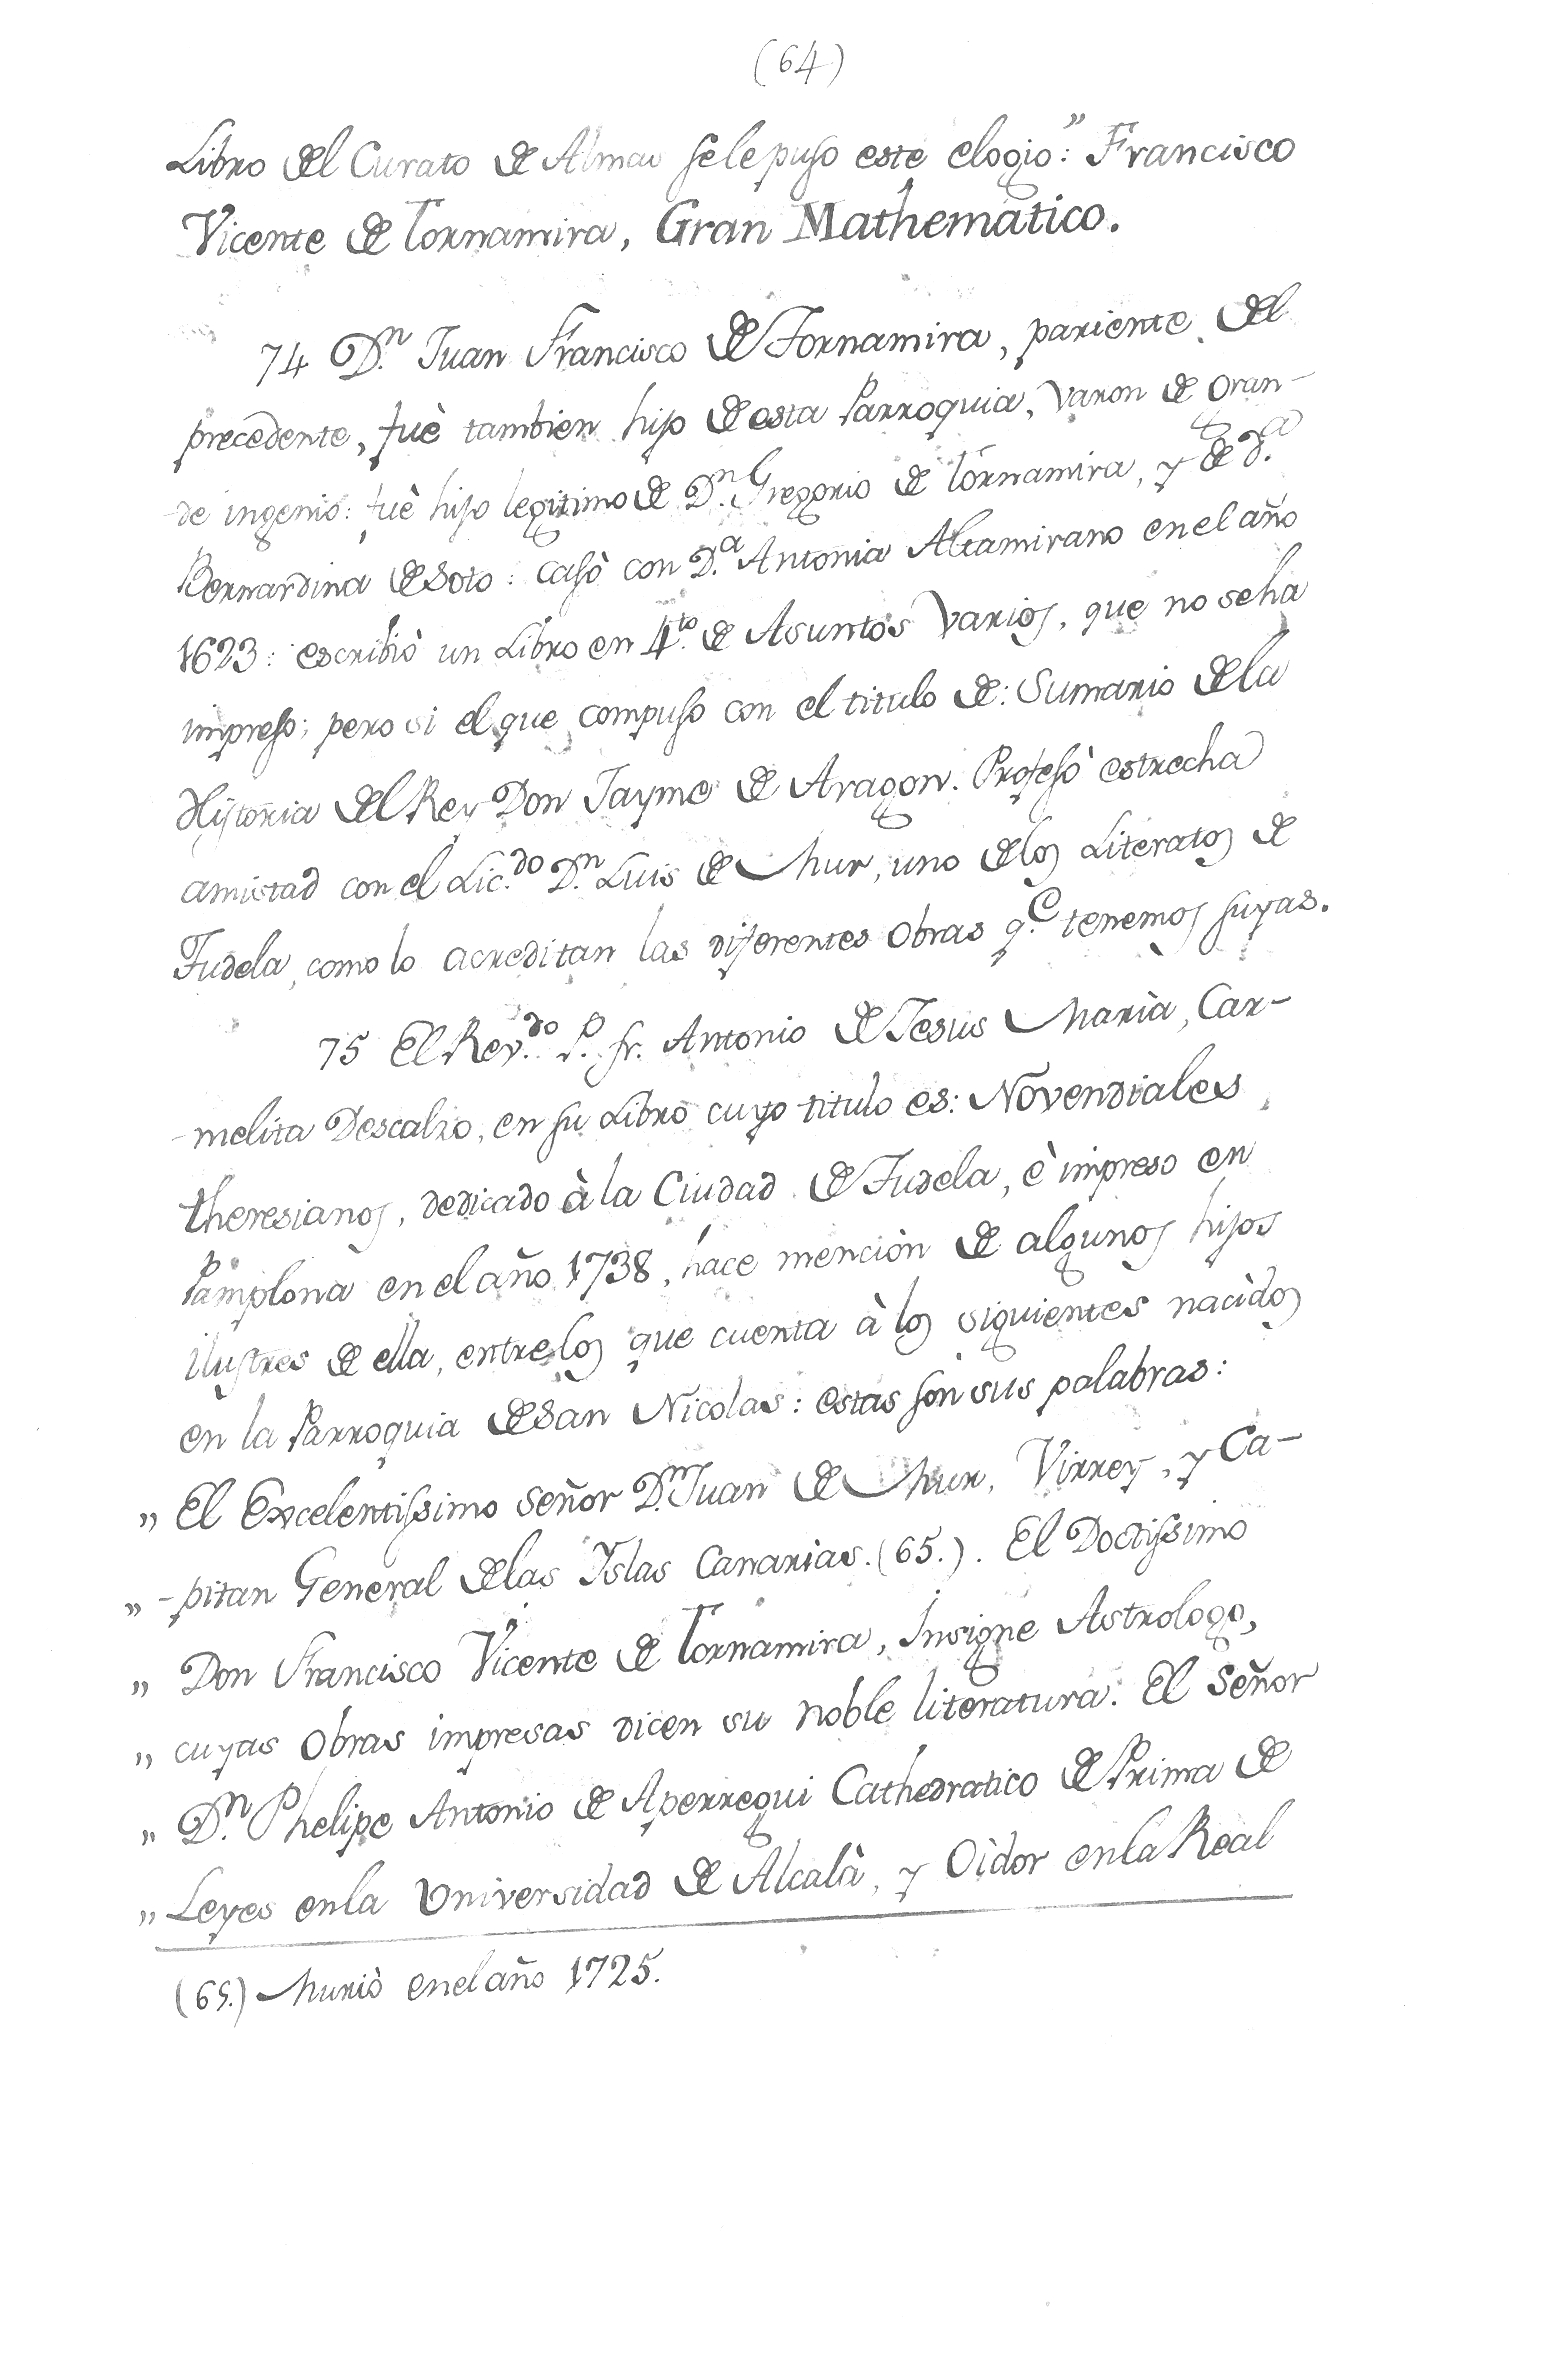 (64)
Libro del Curato de Almas se le puso este elogio:" Francisco
Vicente de Tornamira, Gran Mathematico.
74 D.n Juan Francisco de Tornamira, pariente del
precedente, fuè tambien hijo de esta Parroquia, varon de gran-
de ingenio: fuè hijo legitimo de D.n Gregorio de Tornamira, y de D.a
Bernardina de Soto: casò con D.a Antonia Altamirano en el año
1623: escribiò un Libro en 4.to de Asuntos varios, que no se ha
impreso; pero si el que compuso con el titulo de: Sumario de la
Historia del Rey Don Jayme de Aragon. Profesò estrecha
amistad con el Lic.do D.n Luis de Mur, uno de los Literatos de
Tudela, como lo acreditan las diferentes obras q.e tenemos suyas.
75 El Rev.do P. fr. Antonio de Jesus Marìa, Car-
-melita Descalzo, en su Libro cuyo titulo es: Novendiales
theresianos, dedicado à la Ciudad de Tudela, è impreso en
Pamplona en el año 1738, hace menciòn de algunos hijos
ilustres de ella, entre los que cuenta à los siguientes nacìdos
en la Parroquia de San Nicolas: estas son sus palabras:
" El Excelentissimo Señor D.n Juan de Mur, Virrey, y Ca-
" -pitan General de las Yslas Canarias. (65.). El Doctissimo
" Don Francisco Vicente de Tornamira, Insigne Astrologo,
" cuyas obras impresas dicen su noble literatura. El Señor
" D.n Phelipe Antonio de Aperregui Cathedratico de Prima de
" Leyes en la Universidad de Alcalà, y Oìdor en la Real
(65.) Muriò en el año 1725.